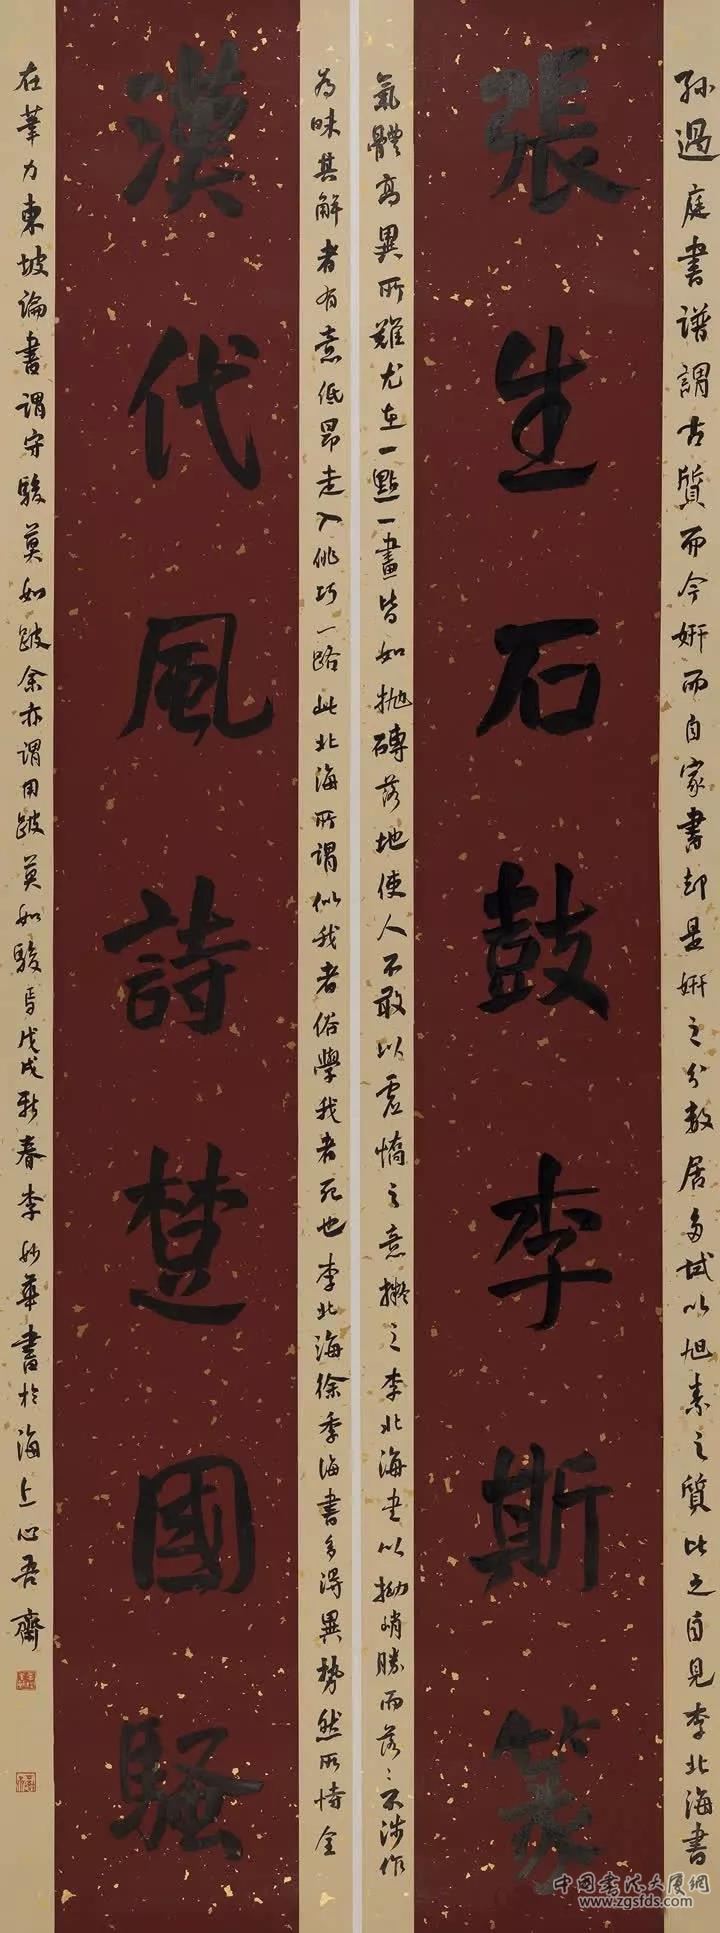 孫過庭書譜謂古質而今妍而自家書却是妍之分數居多試以旭素之質比之自見李北海書
張生石鼓李斯篆
氣體高異所難尤在一點一畫皆如拋磚落地使人不敢以虛憍之意擬之李北海書以拗峭勝而落〻不涉作
為昧其解者有意低昂走入佻巧一路此北海所謂似我者俗學我者死也李北海徐季海書多得異勢然所恃全
漢代風詩楚國騷
在筆力東坡論書謂守駿莫如跛余亦謂用跛莫如駿焉戊戌新春李妙華書於海上心吾齋
中國書法大廈網
www.zgsfds.com